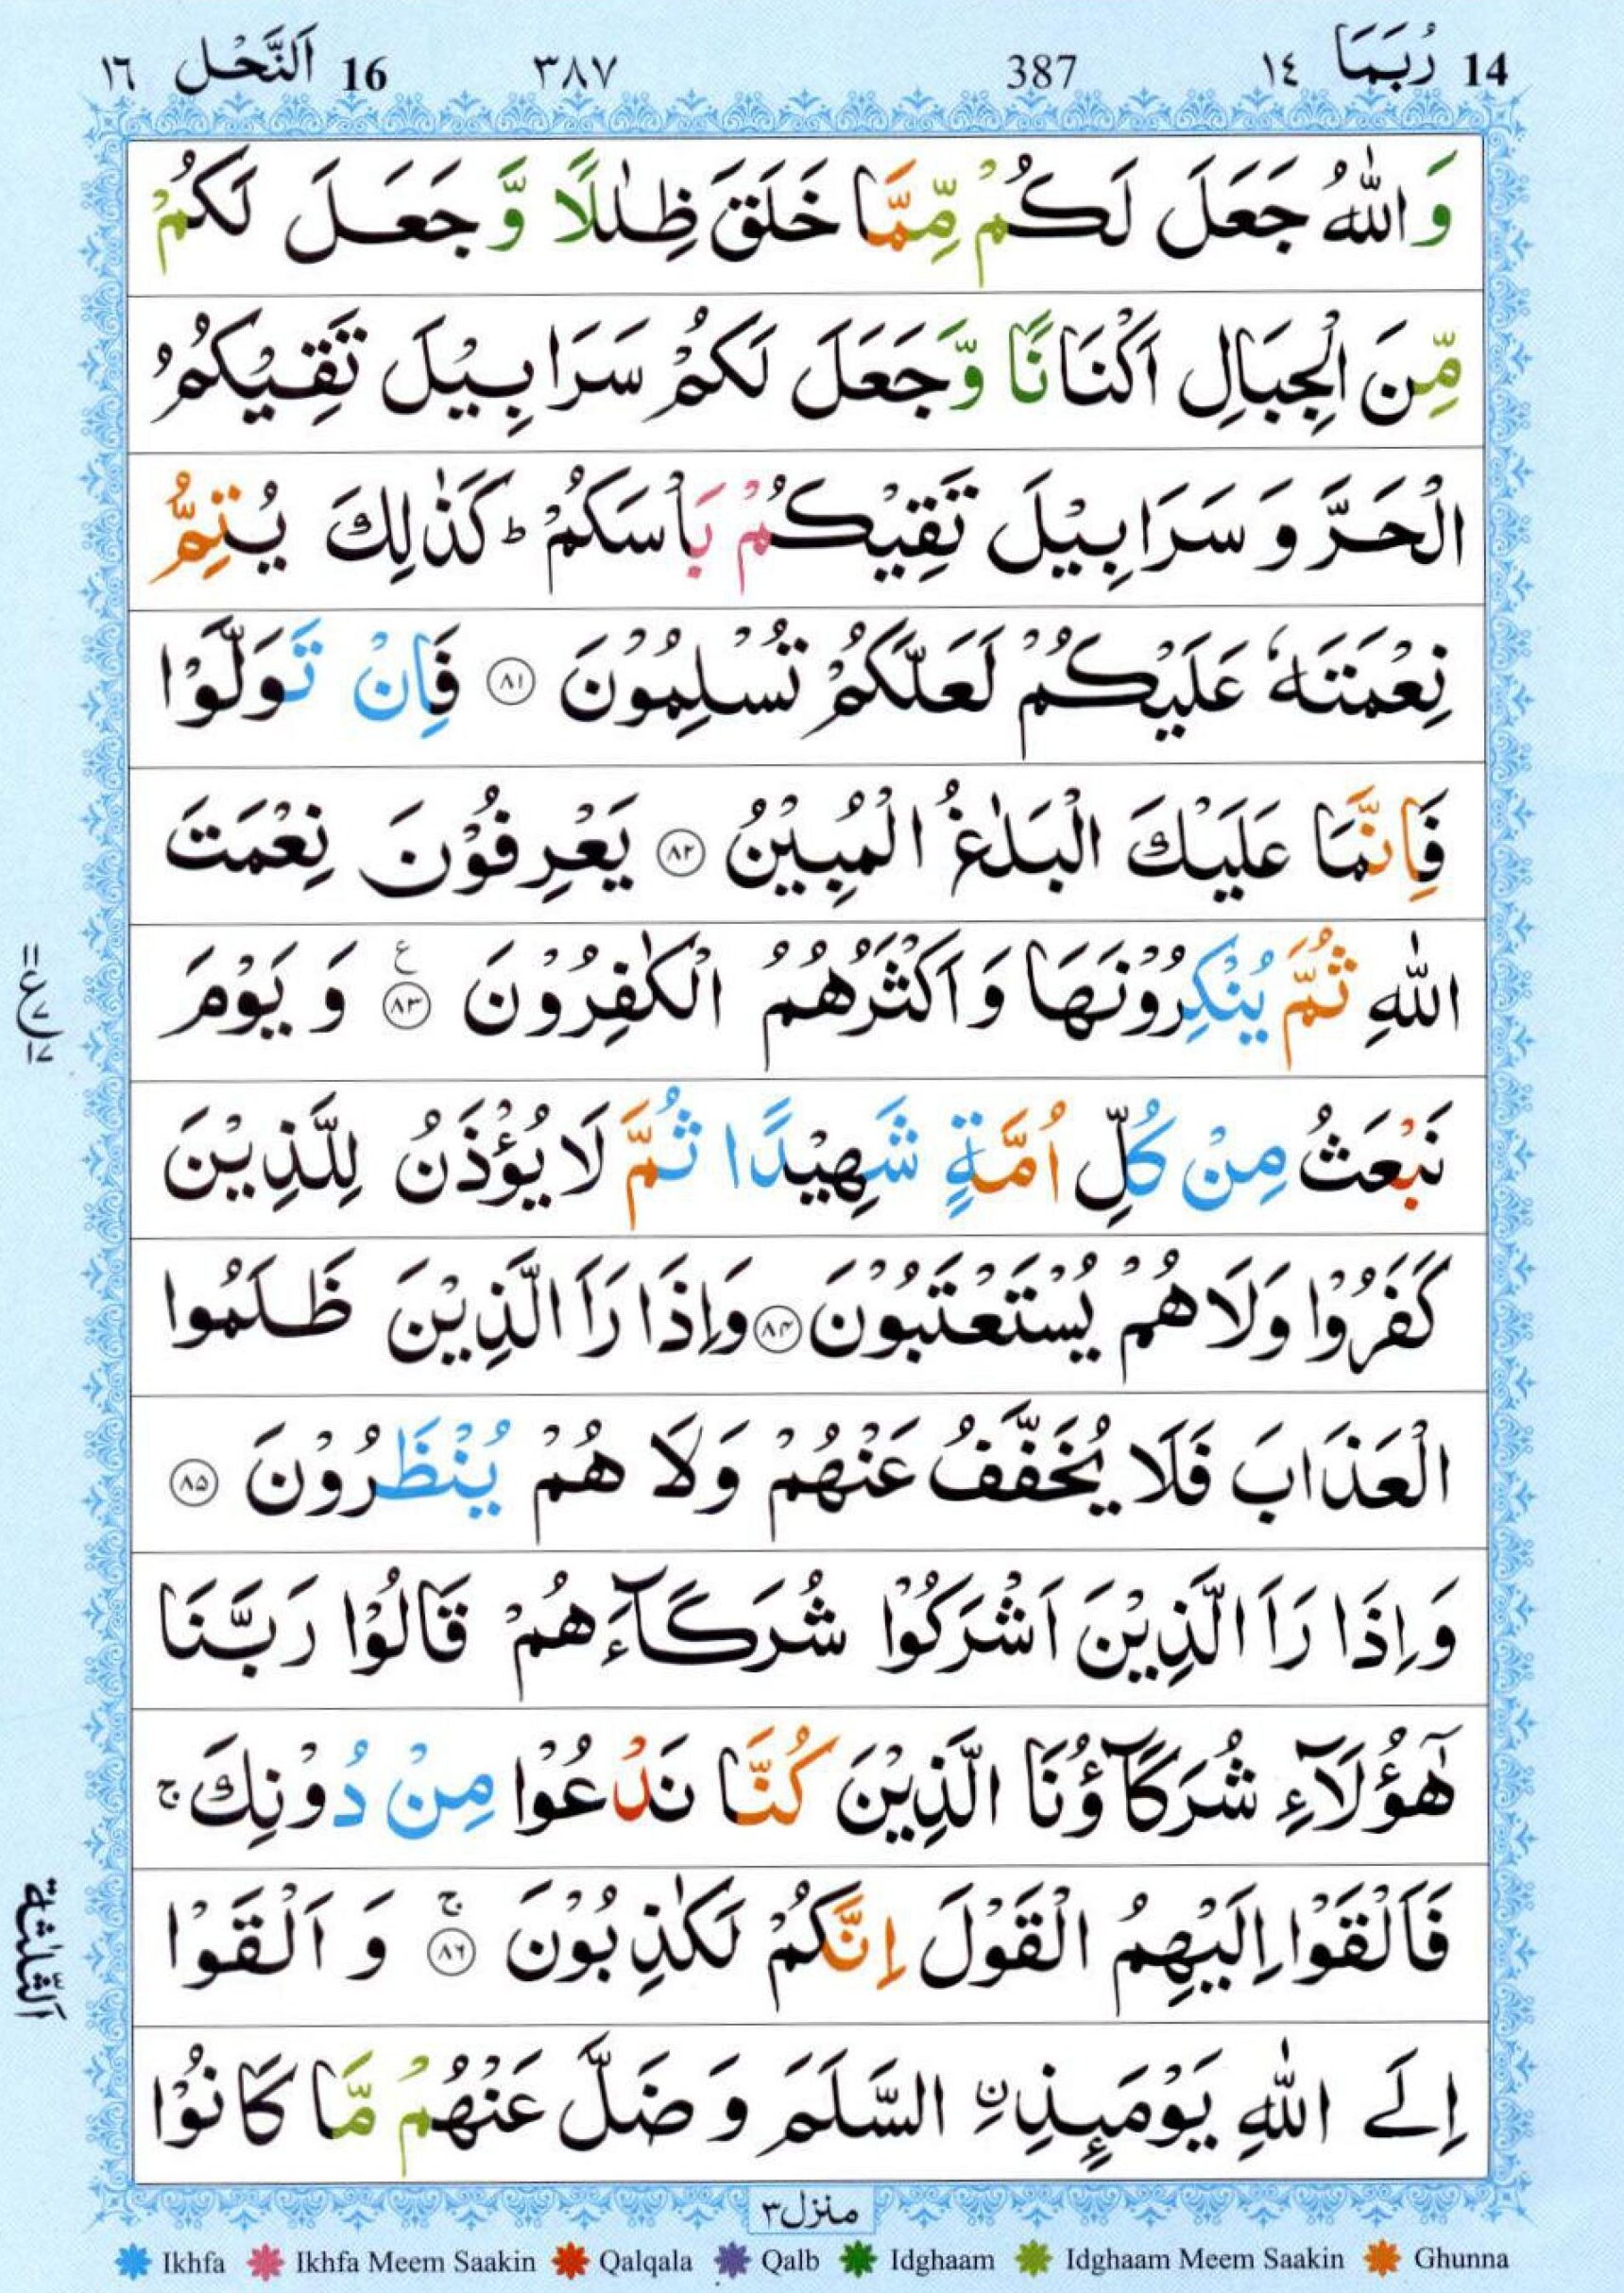 14 رُبَمَا ١٤ 387 ٣٨٧ 16 اَلنَّحْل ١٦
وَاللّٰهُ جَعَلَ لَكُمْ مِّمَّا خَلَقَ ظِلٰلًا وَّجَعَلَ لَكُمْ
مِّنَ الْجِبَالِ اَكْنَانًا وَّجَعَلَ لَكُمْ سَرَابِيْلَ تَقِيْكُمُ
الْحَرَّ وَ سَرَابِيْلَ تَقِيْكُمْ بَاْسَكُمْ ؕ كَذٰلِكَ يُتِمُّ
نِعْمَتَهٗ عَلَيْكُمْ لَعَلَّكُمْ تُسْلِمُوْنَ ۸۱ فَاِنْ تَوَلَّوْا
فَاِنَّمَا عَلَيْكَ الْبَلٰغُ الْمُبِيْنُ ۸۲ يَعْرِفُوْنَ نِعْمَتَ
اللّٰهِ ثُمَّ يُنْكِرُوْنَهَا وَاَكْثَرُهُمُ الْكٰفِرُوْنَ ۸۳ ع وَ يَوْمَ
نَبْعَثُ مِنْ كُلِّ اُمَّةٍ شَهِيْدًا ثُمَّ لَا يُؤْذَنُ لِلَّذِيْنَ
كَفَرُوْا وَلَا هُمْ يُسْتَعْتَبُوْنَ ۸۴ وَاِذَا رَاَ الَّذِيْنَ ظَلَمُوا
الْعَذَابَ فَلَا يُخَفَّفُ عَنْهُمْ وَلَا هُمْ يُنْظَرُوْنَ ۸۵
وَاِذَا رَاَ الَّذِيْنَ اَشْرَكُوْا شُرَكَآءَهُمْ قَالُوْا رَبَّنَا
هٰٓؤُلَآءِ شُرَكَآؤُنَا الَّذِيْنَ كُنَّا نَدْعُوْا مِنْ دُوْنِكَ ۚ
فَاَلْقَوْا اِلَيْهِمُ الْقَوْلَ اِنَّكُمْ لَكٰذِبُوْنَ ۸۶ ۚ وَ اَلْقَوْا
اِلَى اللّٰهِ يَوْمَىِٕذِ ۨ السَّلَمَ وَ ضَلَّ عَنْهُمْ مَّا كَانُوْا
اَلثَّلٰثَة
منزل ٣
Ikhfa Ikhfa Meem Saakin Qalqala Qalb Idghaam Idghaam Meem Saakin Ghunna